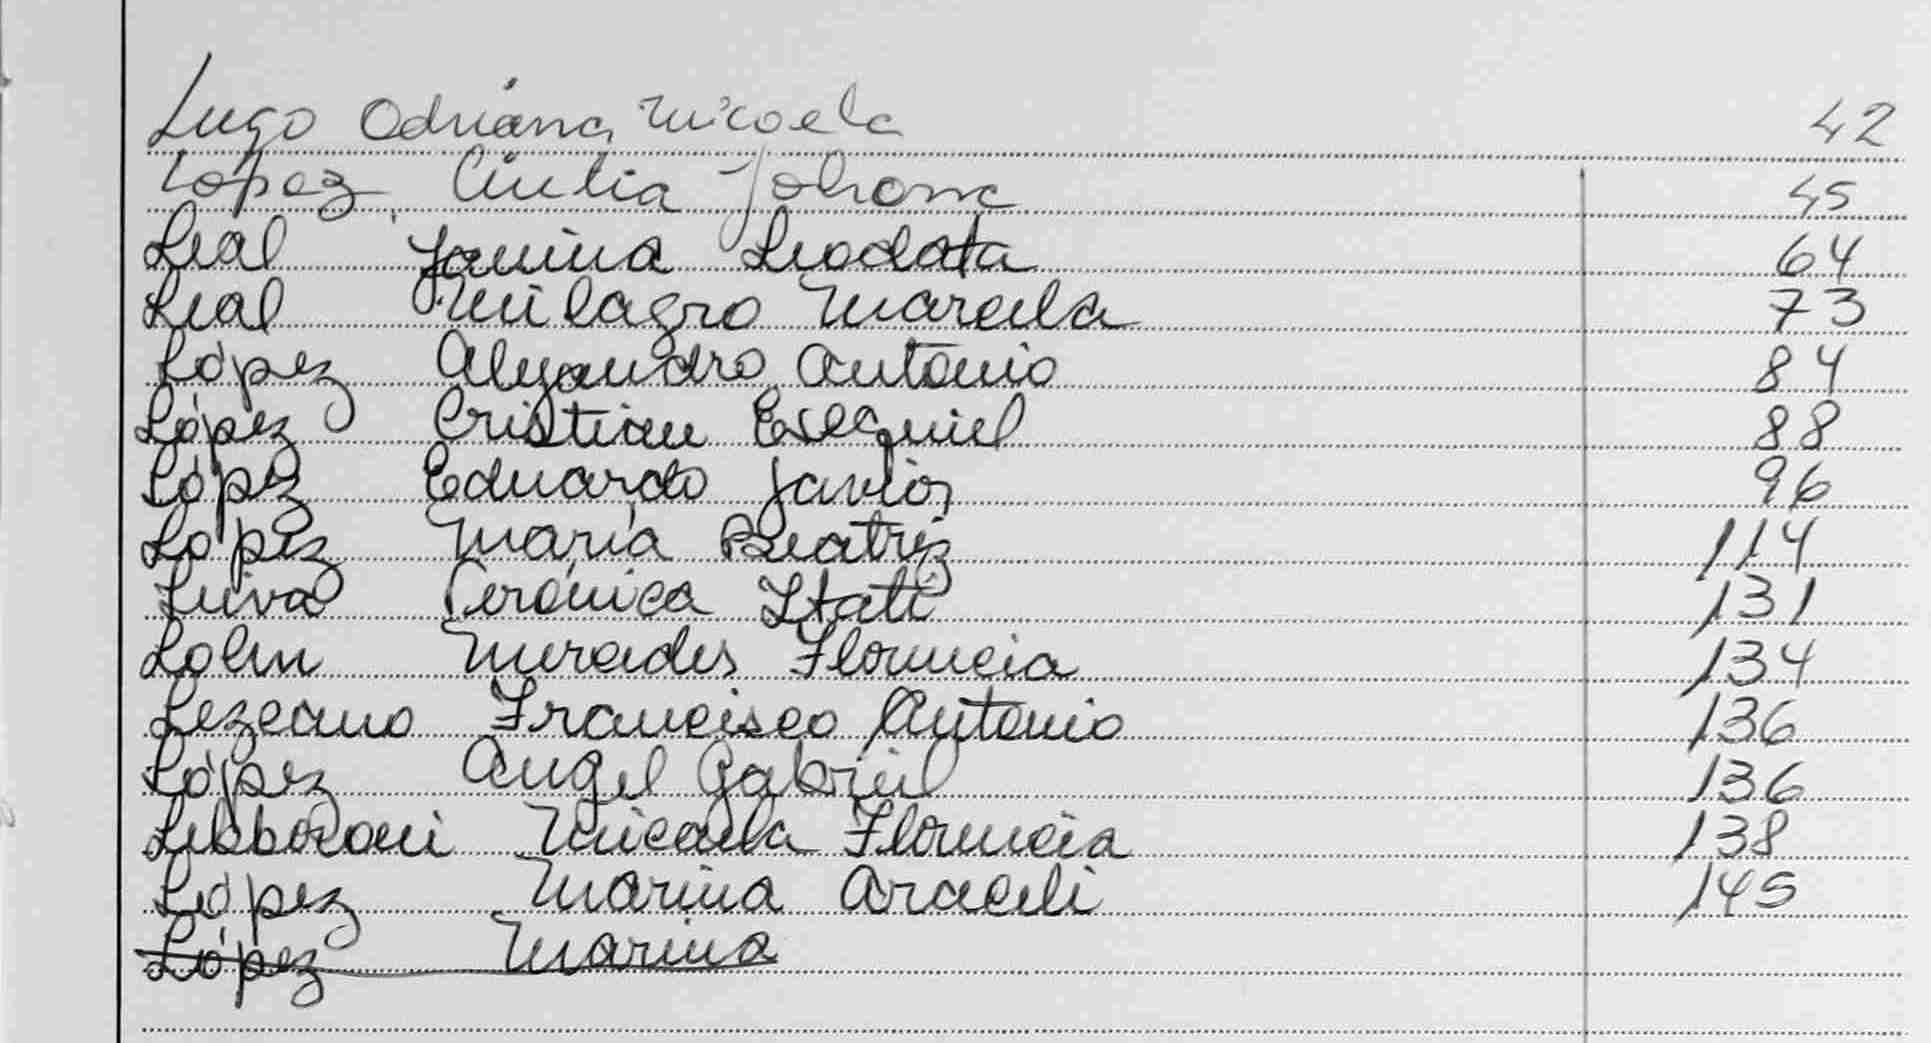 Lugo Adriana Micaela 42
Lopez Cintia Johana 45
Leal Yanina Leodata 64
Leal Milagro Marcela 73
López Alejandro Antonio 84
López Cristian Esequiel 88
López Eduardo Javier 96
López María Beatriz 114
Leiva Verónica Itatí 131
Mercedes Florencia 134
Lezcano Francisco Antonio 136
López Angel Gabriel 136
Micaela Florencia 138
López Marina Araceli 145
López Marina